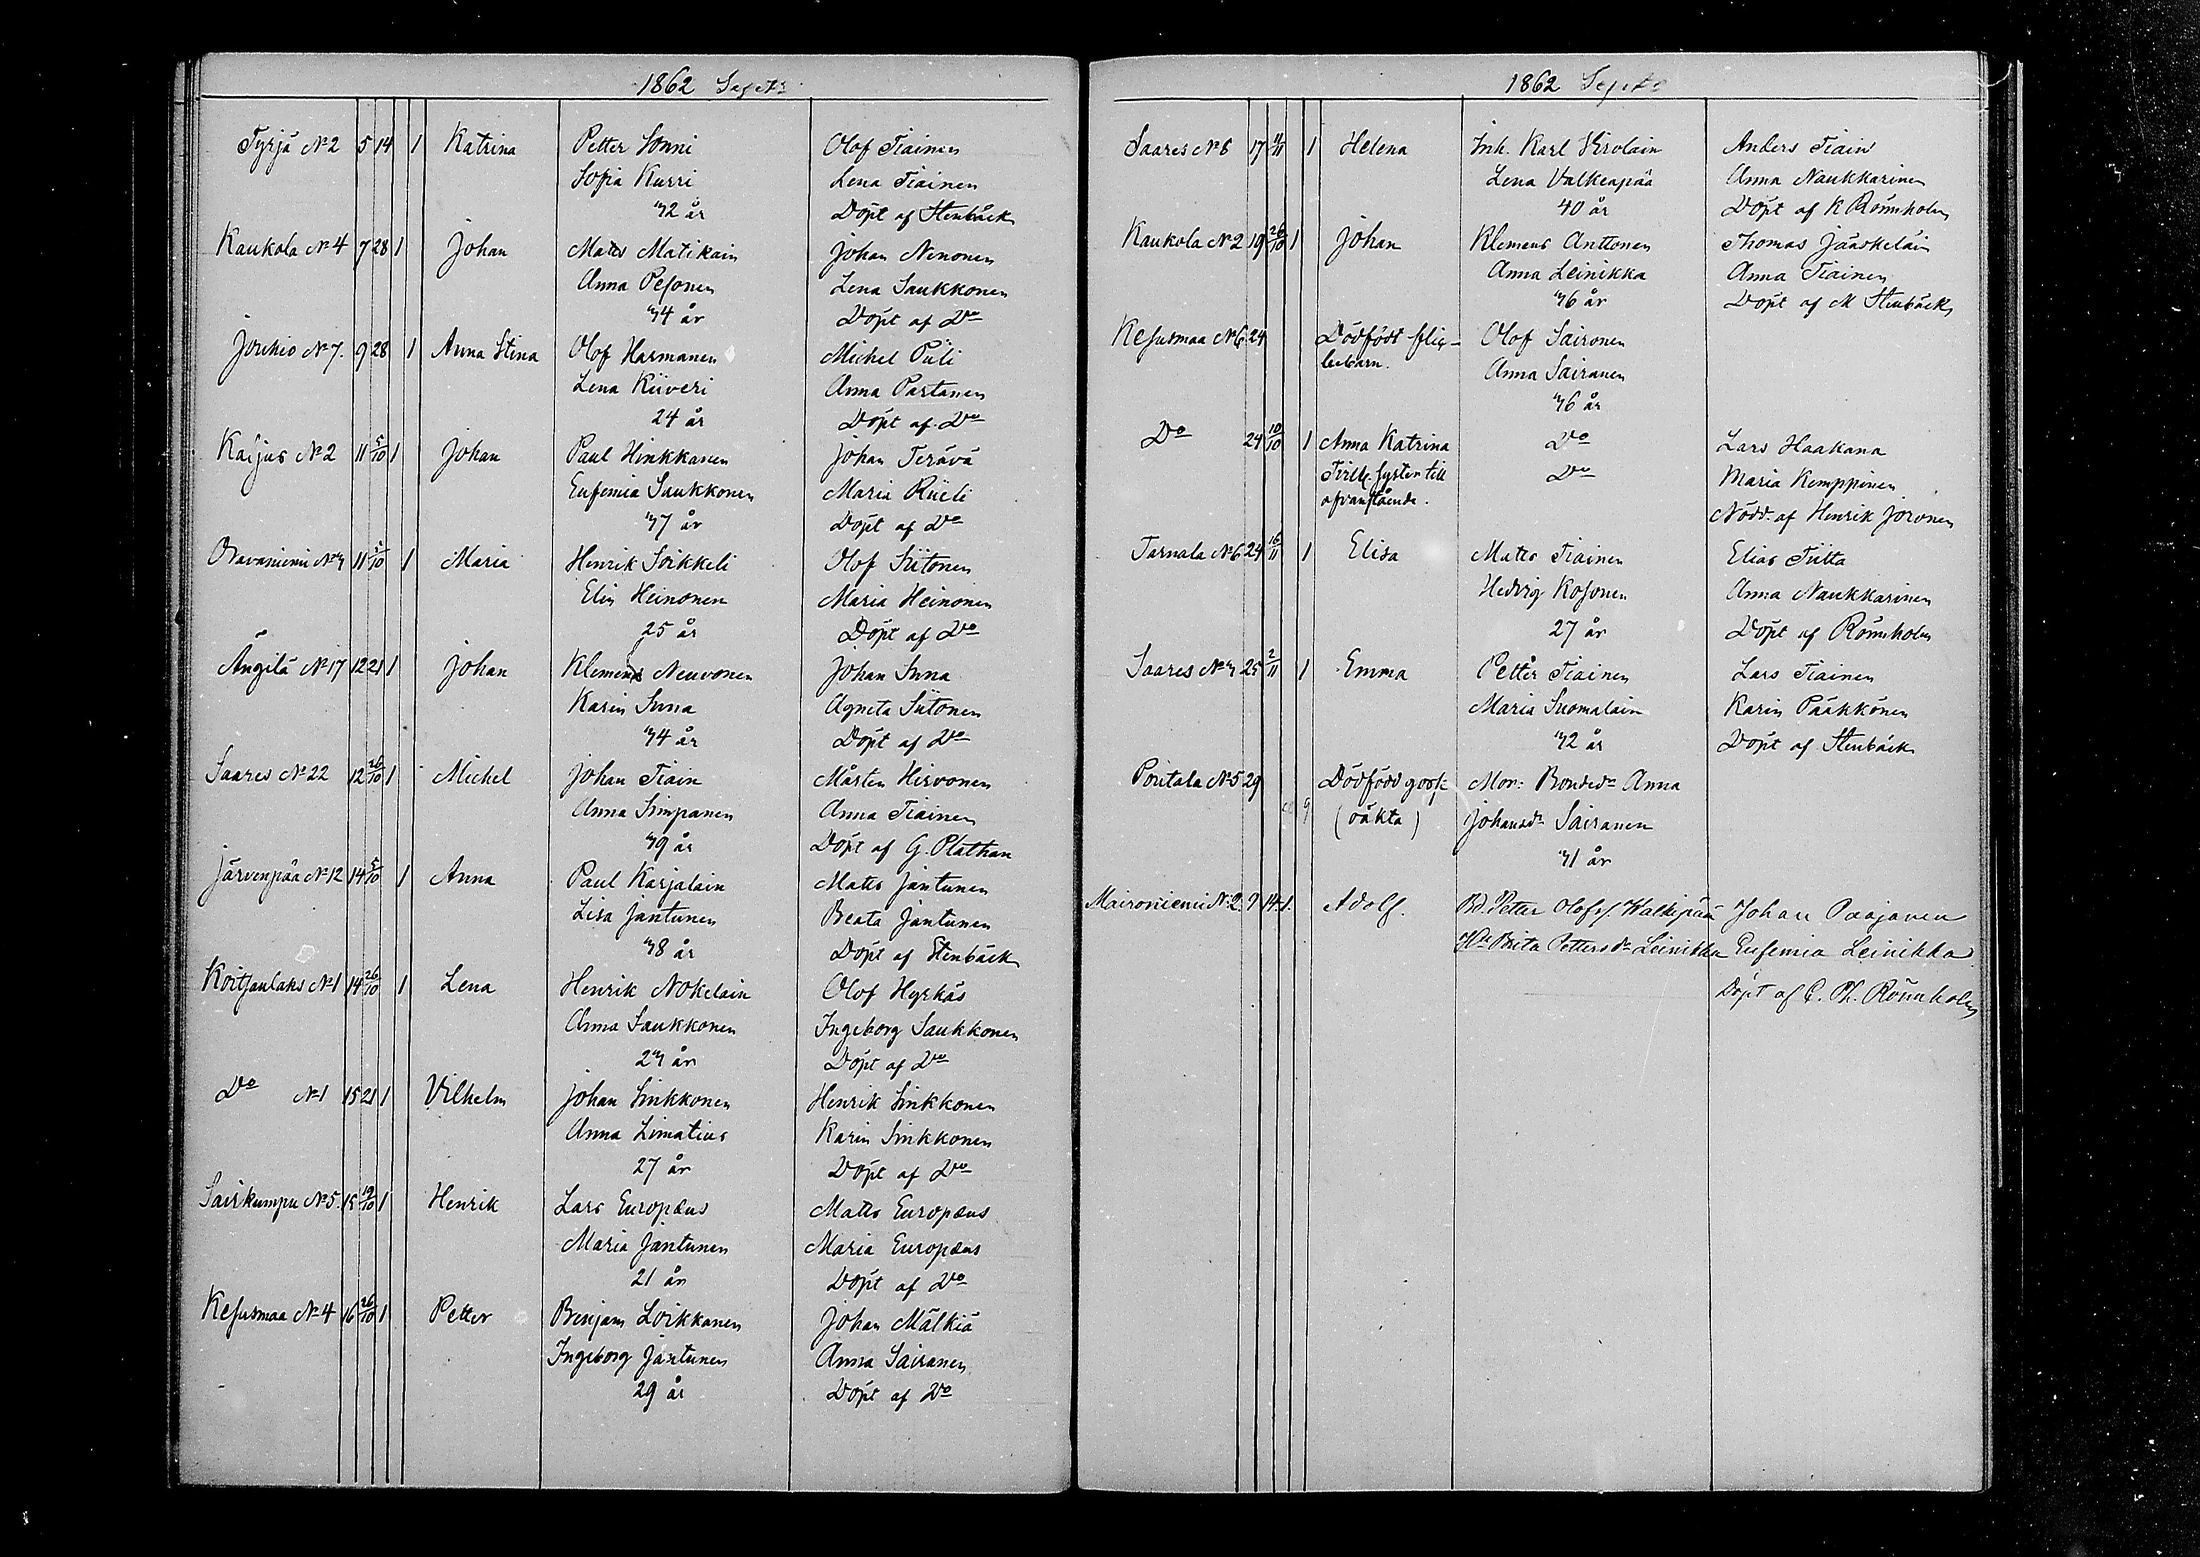 1862 Septr
Tyrjä No 2 5 14 1 Katrina Petter Sonni Olof Tiainen
Sofia Kurri Lena Tiainen
32 år Döpt af Stenbäck
Kaukola No 4 7 28 1 Johan Matts Matikain Johan Nenonen
Anna Pesonen Lena Saukkonen
34 år Döpt af Do
Joukio No 7. 9 28 1 Anna Stina Olof Harmanen Michel Piili
Lena Kiiveri Anna Partanen
24 år Döpt af Do
Kaljus No 2 11 5/10 1 Johan Paul Hinkkanen Johan Terävä
Eufemia Saukkonen Maria Riieli
37 år Döpt af Do
Oravaniemi No 3 11 5/10 1 Maria Henrik Soikkeli Olof Siitonen
Elin Heinonen Maria Heinonen
25 år Döpt af Do
Ängilä No 17 12 21 1 Johan Klemens Neuvonen Johan Inna
Karin Inna Agneta Siitonen
34 år Döpt af Do
Saares No 22 12 26/10 1 Michel Johan Tiain Mårten Hirvonen
Anna Simpanen Anna Tiainen
39 år Döpt af G. Plathan
Järvenpää No 12 14 5/10 1 Anna Paul Karjalain Matts Jantunen
Lisa Jantunen Beata Jantunen
38 år Döpt af Stenbäck
Koitsanlaks No 1 14 26/10 1 Lena Henrik Nokelain Olof Hyrkäs
Anna Saukkonen Ingeborg Saukkonen
23 år Döpt af Do
Do No 1 15 21 1 Vilhelm Johan Sinkkonen Henrik Sinkkonen
Anna Limatius Karin Sinkkonen
27 år Döpt af Do
Sairkumpu No 5. 15 19/10 1 Henrik Lars Europæus Matts Europæus
Maria Jantunen Maria Europæus
21 år Döpt af Do
Kesusmaa No 4 16 26/10 1 Petter Benjam Loikkanen Johan Mälkiä
Ingeborg Jantunen Anna Sairanen
29 år Döpt af Do
1862 Septr
Saares No 6 17 1 Helena Inh. Karl Virolain Anders Tiain
Lena Valkeapää Anna Naukkarinen
40 år Döpt af K Rönnholm
Kaukola No 2 19 26/10 1 Johan Klemens Anttonen Thomas Jääskeläin
Anna Leinikka Anna Tiainen
36 år Döpt af M Stenbäck
Kesusmaa No 6 24 Dödfödt flic- Olof Sairanen
kebarn. Anna Sairanen
36 år
Do 24 10/10 1 Anna Katrina Do Lars Haakana
Tvill. syster till Do Maria Kemppinen
ofvanstående. Nödd. af Henrik Joronen
Tarnala No 6 24 16/11 1 Elisa Matts Tiainen Elias Tiitta
Hedvig Kosonen Anna Naukkarinen
27 år Döpt af Rönnholm
Saares No 3 25 2/11 1 Emma Petter Tiainen Lars Tiainen
Maria Suomalain Karin Pääkkönen
32 år Döpt af Stenbäck
Poutala No 5 29 Dödfödd goss Mor: Bonded:r Anna
(oäkta) Johansd:r Sairanen
31 år
Maironiemi No 2. 9 14. 1. Adolf. Bd. Petter Olofss. Walkipää Johan Paajanen
H:u Brita Pettersd:r Leinikka Eufemia Leinikka
Döpt af C. Ph. Rönnholm